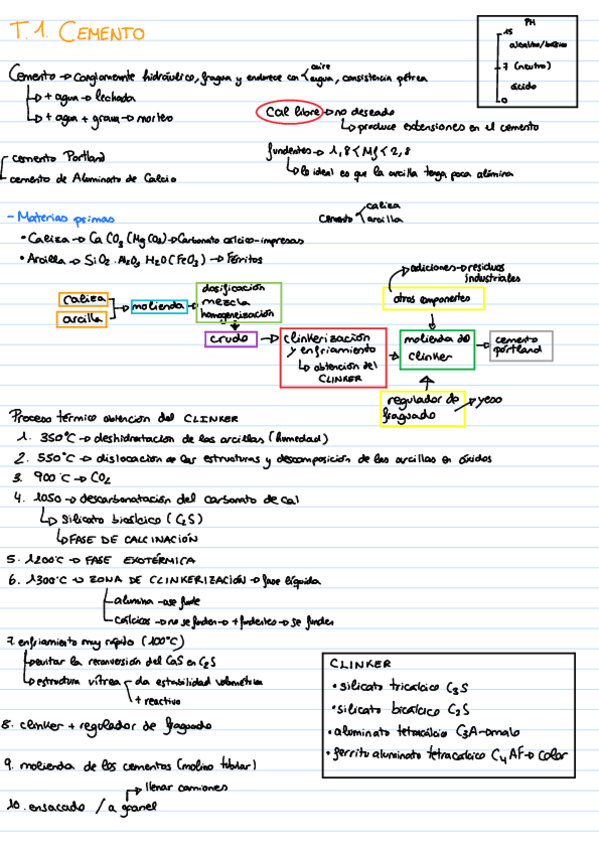 T.1. CEMENTO
PH
15
alcalino/básico
7 (neutro)
ácido
0
Cemento → conglomerante hidráulico, fragua y endurece con aire agua, consistencia pétrea
→ + agua → lechada
→ + agua + gram → mortero
Cal libre → no deseado
→ produce extensiones en el cemento
cemento Portland
cemento de Aluminato de Calcio
fundentes → 1,8 < Mf < 2,8
→ lo ideal es que la arcilla tenga poca alúmina
- Materias primas
cemento
caliza
arcilla
• Caliza → CaCO3 (MgCO3) → Carbonato cálcico-impuresas
• Arcilla → SiO2 · Al2O3 H2O (FeO3) → Férritos
caliza
arcilla
→ molienda →
dosificación
mezcla
homogeneización
crudo
→ clinkerización
y enfriamiento
→ obtención del
CLINKER
→ adiciones → residuos
industriales
otros componentes
molienda de
clinker
→ cemento
portland
regulador de
fraguado
→ yeso
Proceso térmico obtención del CLINKER
1. 350°C → deshidratación de las arcillas (humedad)
2. 550°C → dislocación de las estructuras y descomposición de las arcillas en óxidos
3. 900°C → CO2
4. 1050 → descarbonatación del carbonato de cal
→ silicato bicálcico (C2S)
→ FASE DE CALCINACIÓN
5. 1200°C → FASE EXOTÉRMICA
6. 1300°C → ZONA DE CLINKERIZACIÓN → fase líquida
alumina → se funde
cálcicos → no se funden → + fundentes → se funden
7. enfriamiento muy rápido (100°C)
→ evitar la reconversión del C3S en C2S
→ estructura vítrea - da estabilidad volumétrica
+ reactivo
8. clinker + regulador de fraguado
9. molienda de los cementos (molino tubular)
→ llenar camiones
10. ensacado / a granel
CLINKER
• silicato tricálcico C3S
• silicato bicálcico C2S
• aluminato tetracálcico C3A → malo
• ferrito aluminato tetracálcico C4AF → color